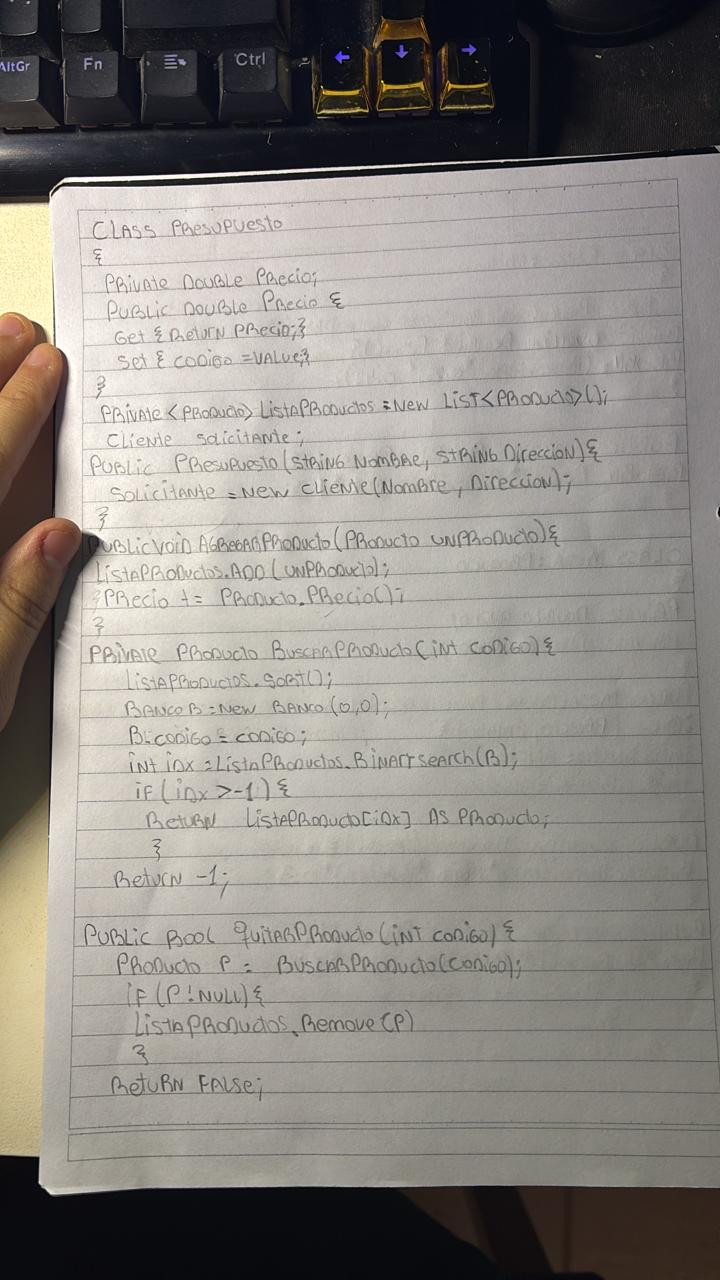 AltGr
Fn
Ctrl
CLASS PResUPUesto
{
PRivAte DOUBLe PRecio;
PUBLIC DOUBLe PRecio {
Get { ReturN PRecio;}
Set { coDiGo = VALUe;}
}
PRivAte <PRoDUcto> ListAPRoDUctos = New LisT<PRoDUcto>();
Cliente solicitANte;
PUBLIC PResUPUesto (stRiNG NomBRe, stRiNG DiReccioN) {
SoLicitANte = New CLieNte(NomBRe, DiReccioN);
}
PUBLic VoiD AGReGARPRoDUcto (PRoDUcto UNPRoDUcto) {
ListAPRoDUctos.ADD (UNPRoDUcto);
PRecio += PRoDUcto.PRecio();
}
PRivAte PRoDUcto BUscARPRoDUcto (iNt coDiGo) {
ListAPRoDUctos.SoRt();
BANCO B = New BANCO (0,0);
B.coDiGo = coDiGo;
iNt iDx = ListAPRoDUctos.BiNARYseARcH(B);
iF (iDx >-1) {
RetuRN ListAPRoDUcto[iDx] AS PRoDUcto;
}
RetuRN -1;
PUBLIC BooL QuitARPRoDUcto (iNT coDiGo) {
PRoDUcto P = BUscARPRoDUcto(coDiGo);
iF (P!NULL) {
ListAPRoDUctos.Remove (P)
}
RetuRN FALSe;